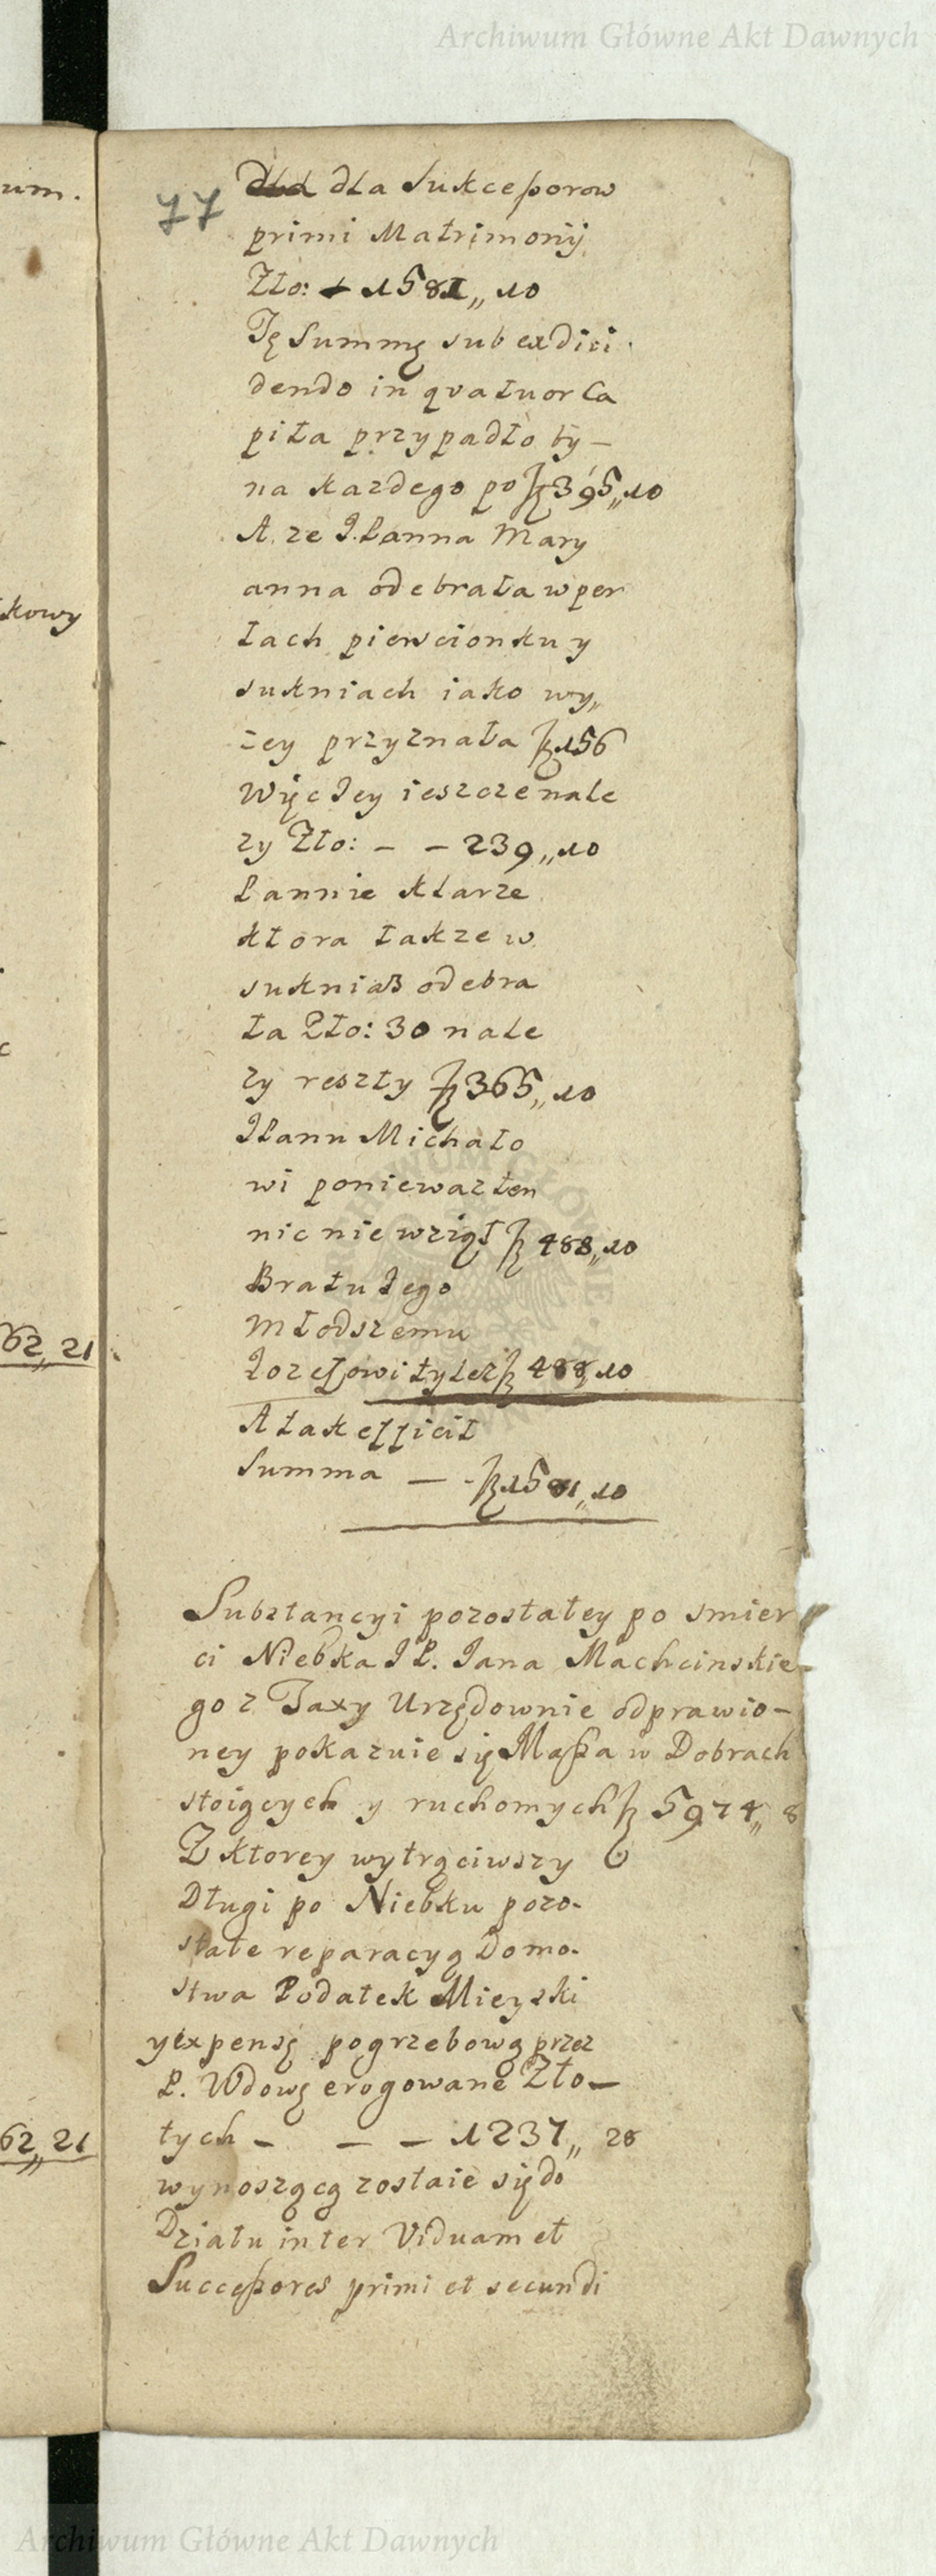 Archiwum Główne Akt Dawnych
um.
77
dla dla Sukceßorow
primi Matrimonij
Zło: 1581,, 10
Tę Summę sub exdivi
dendo in qvatuor Ca
pita przypadło by –
na kazdego po 395,, 10
A. ze J. Panna Mary
anna odebrała w per
łach pierscionku y
sukniach iako wy,,
zey przyznała 156
Więc Jey ieszcze nale
zy Zło: – – 239,, 10
Pannie Klarze
ktora takze w
sukniach odebra
ła Zło: 30 nale
zy reszty 365,, 10
JPanu Michało
wi poniewaz ten
nic nie wziął 488,, 10
Bratu Jego
Młodszemu
Jozefowi tylez 488,, 10
A tak efficit
Summa – 1581,, 10
Substancyi pozostałey po smier
ci Niebka JP. Jana Machcinskie
go z Taxy Urzędownie odprawio –
ney pokazuie się Maßa w Dobrach
stoiących y ruchomych 5974,, 8
Z ktorey wytrąciwszy
Długi po Niebku pozo-
stałe reparacyą Domo-
stwa Podatek Mieyski
y expensę pogrzebową przez
P. Wdowę erogowane Zło –
tych – – – 1237,, 28
wynoszącą zostaie się do
Działu inter Viduam et
Succeßores primi et secundi
kowy
62,, 21
62,, 21
Archiwum Główne Akt Dawnych